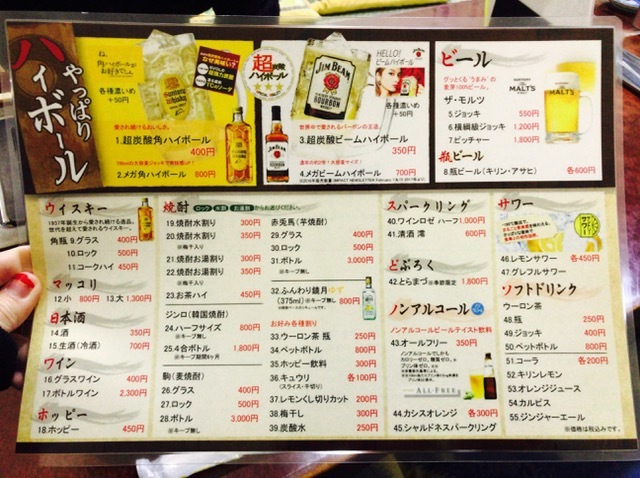 やっぱり
ハイボール
ね、
角ハイボールが
お好きでしょ。
各種濃いめ
+50円
なぜ美味い?
Suntory
Whisky
愛され続けるおいしさ。
1.超炭酸角ハイボール
400円
2.メガ角ハイボール 800円
超
炭酸
ハイボール
JIM BEAM
KENTUCKY STRAIGHT
BOURBON
WHISKEY
HELLO!
ビームハイボール
各種濃いめ
+50円
世界中で愛されるバーボンの王道。
3.超炭酸ビームハイボール
350円
4.メガビームハイボール 700円
ビール
グッとくる"うまみ"の
麦芽100%ビール。
ザ・モルツ
5.ジョッキ 550円
6.横綱級ジョッキ 1,200円
7.ピッチャー 1,800円
瓶ビール
8.瓶ビール(キリン・アサヒ) 各600円
SUNTORY
THE
MALT'S
ウイスキー
1937年誕生から愛され続ける逸品。
世代を超えて愛されるウイスキー。
角瓶 9.グラス 400円
10.ロック 500円
11.コークハイ 450円
マッコリ
12.小 800円 13.大 1,300円
日本酒
14.酒 350円
15.生酒(冷酒) 700円
ワイン
16.グラスワイン 400円
17.ボトルワイン 2,300円
ホッピー
18.ホッピー 450円
焼酎
ロック 水割 お湯割 からお選びください。
19.焼酎水割り 300円
20.焼酎水割り 350円
※梅干入り
21.焼酎お湯割り 300円
22.焼酎お湯割り 350円
※梅干入り
23.お茶ハイ 450円
ジンロ(韓国焼酎)
24.ハーフサイズ 800円
※キープ無し
25.4合ボトル 1,800円
※キープ期間6ヶ月
駒(麦焼酎)
26.グラス 400円
27.ロック 500円
28.ボトル 3,000円
※キープ無し
赤兎馬(芋焼酎)
29.グラス 400円
30.ロック 500円
31.ボトル 3,000円
※キープ無し
32.ふんわり鏡月ゆず
(375ml) 800円
※キープ無し
お好み各種割り
33.ウーロン茶 瓶 250円
34.ペットボトル 800円
35.ホッピー飲料 300円
36.キュウリ 各100円
(スライス・千切り)
37.レモンくし切りカット 200円
38.梅干し 300円
39.炭酸水 250円
スパークリング
40.ワインロゼ ハーフ 1,000円
41.清酒 澪 600円
どぶろく
42.とらまつ※季節限定 1,800円
ノンアルコール
ノンアルコールビールテイスト飲料
43.オールフリー 350円
ノンアルコールでしかも
カロリーゼロ、糖質ゼロ。
プリン体ゼロ。
ALL-FREE
44.カシスオレンジ 各300円
45.シャルドネスパークリング
サワー
46.レモンサワー 各450円
47.グレフルサワー
ソフトドリンク
ウーロン茶
48.瓶 250円
49.ジョッキ 400円
50.ペットボトル 800円
51.コーラ 各200円
52.キリンレモン
53.オレンジジュース
54.カルピス
55.ジンジャーエール
※価格は税込みです。